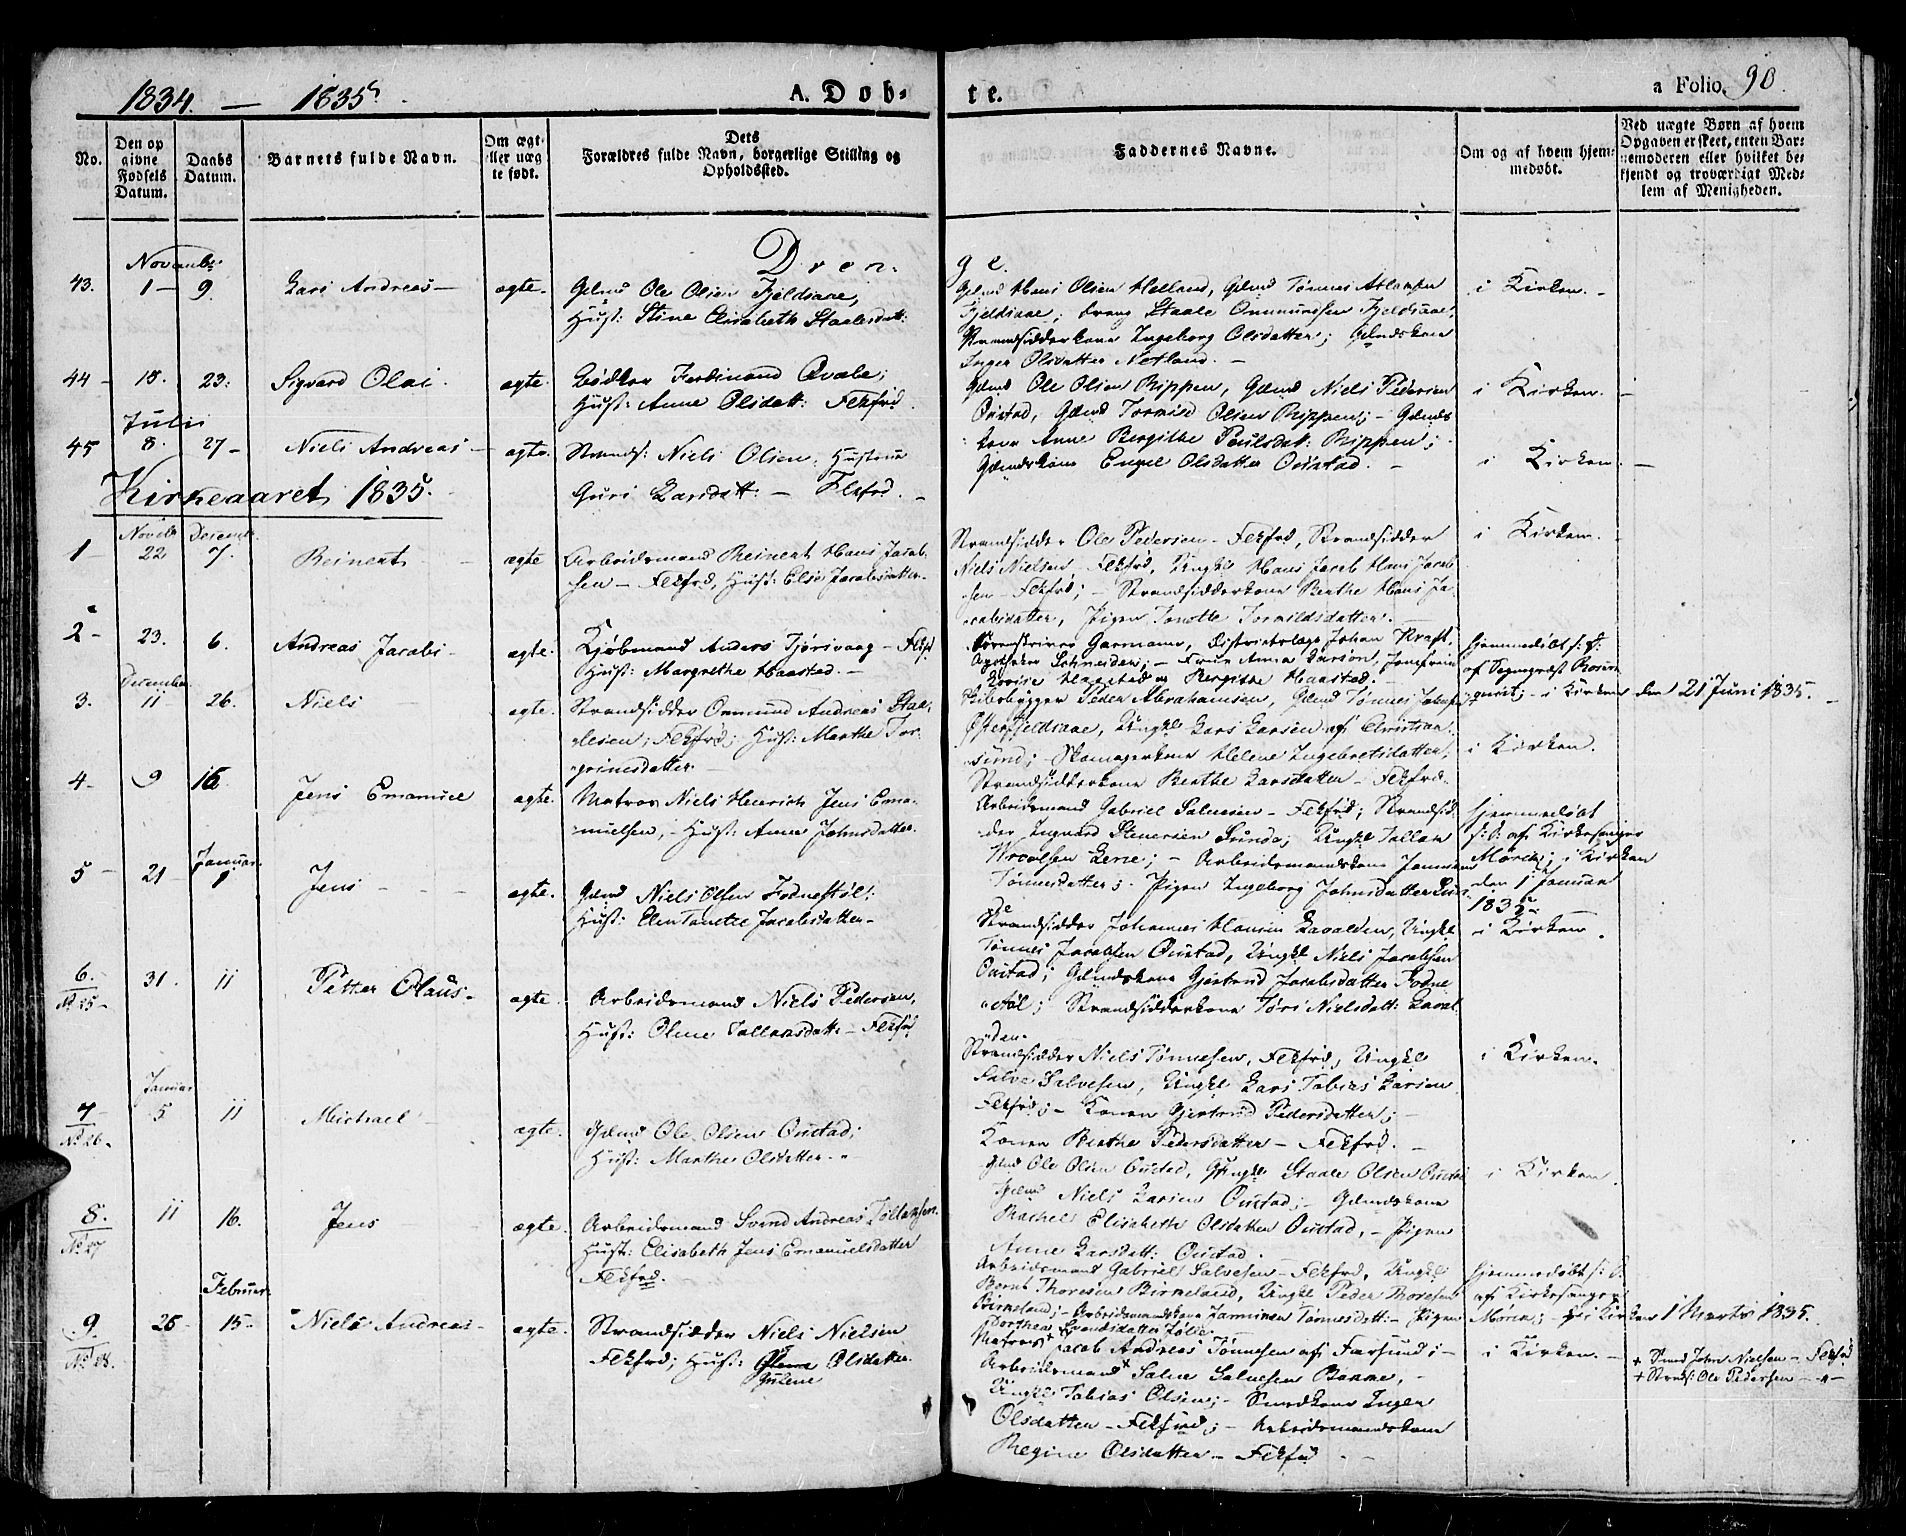 1834. — 1835.
A. Dob-
te.
a Folio. 90.
No.
Den op
givne
Fødsels
Datum.
Daabs
Datum.
Barnets fulde Navn.
Om ægt-
eller uæg
te født.
Dets
Forældres fulde Navn, borgerlige Stilling og
Opholdssted.
Faddernes Navne.
Om og af hvem hjem-
medøbt.
Ved uægte Børn af hvem
Opgaven er skeet, enten Bar-
nemoderen eller hvilket be-
kjendt og troværdigt Med-
lem af Menigheden.
Dren-
ge.
43.
Novemb:
1 —
9.
Lars Andreas —
ægte.
Gdmd Ole Olsen Fjeldsaae,
Hust: Stine Elisabeth Staalesdatt:
Gdmd Hans Olsen Helland, Gdmd Tønnes Atlaksen
Fjeldsaae; dreng Staale Ommundsen Fjeldsaae,
Strandsidderkone Ingeborg Olsdatter; Gdmdskone
Inger Olsdatter Netland. —
i Kirken. —
44 —
18.
23:
Sigvard Olai.
ægte.
Bødker Ferdinand Qvale;
Hust: Anne Olsdatt: Flekfrd.
Gdmd Ole Olsen Rippen, Gdmd Niels Pedersen
Oustad, Gdmd Tormod Olsen Rippen; — Gdmds
kone Anne Bergithe Poulsdat: Rippen;
Gdmdskone Engel Olsdatter Oustad. —
i Kirken. —
45
Julii
8.
27 —
Niels Andreas —
ægte.
Strands: Niels Olsen, Hustrue
Guri Larsdatt: — Flekfrd. —
i Kirken. —
Kirkeaaret 1835.
1
Novbr
22
Decemb.
7.
Reinert —
ægte
Arbeidsmand Reinert Hans Jacob-
sen — Flekfrd, Hust: Else Jacobsdatter.
Strandsidder Ole Pedersen — Flekfrd, Strandsidder
Niels Nielsen — Flekfrd, Ungkl Hans Jacob Hans Jacob
sen — Flekfrd; — Strandsidderkone Berthe Hans Ja-
cobsdatter, Pigen Tonette Tormodsdatter. —
i Kirken. —
2 —
23.
6.
Andreas Jacob —
ægte.
Kjøbmand Anders Tjørsvaag — Flekf
Hust: Margrethe Haastad. —
Sorenskriver Garmann, Districtslæge Johan Kraft,
Apotheker Schneider; — Frue Anna Larson, Jomfruen
Lovise Haastad og Bergithe Haastad. —
Hjemmedøbt s: d:
af Sognepræst
i Kirken den 21 Juni 1835. —
3.
December
11 —
26.
Niels —
ægte.
Strandsidder Ommund Andreas Staa-
lesen, Flekfrd; Hust: Marthe Tor-
grimsdatter. —
Skibsbygger Peder Abrahamsen, Gdmd Tønnes
Østerfjeldsaae, Ungkl Lars Larsen af Christian-
sund; — Skomagerkone Helene Ingebretsdatter,
Strandsidderkone Berthe Larsdatter — Flekfrd.
i Kirken.
4 —
9
16
Jens Emanuel
ægte.
Matros Niels Henrich Jens Ema-
nuelsen, — Hust: Anne Johnsdatter.
Arbeidsmand Gabriel Salvesen — Flekfrd; Strandsid-
der Ingvard Stenersen Sunde; Ungkl Tallak
Lene; — Arbeidsmandskone
Tønnesdatter; Pigen Ingeborg Johnsdatter
Hjemmedøbt
s: d: af Kirkesanger
Mørch; i Kirken
den 1 Januar
1835.
5 —
21 —
Januar.
1
Jens — — —
ægte.
Gdmd Niels Olsen Fodnestøl;
Hust: Elen Tomtte Jacobsdatter —
Strandsidder Johannes Hansen Lavolden, Ungkl
Tønnes Jacobsen Oustad, Ungkl Niels Jacobsen
Oustad; Gdmdskone Gjertrud Jacobsdatter Fodne
støl; Strandsidderkone Tøri Nielsdatt: Lavol-
den. —
i Kirken.
6.
No 25 —
31.
11
Petter Olaus —
ægte.
Arbeidsmand Niels Pedersen,
Hust: Oline Tallaksdatt: — Flekfrd
Strandsidder Niels Tønnesen, Flekfrd, Ungkl
Salve Salvesen, Ungkl Lars Tobias Larsen
Flekfrd; — Konen Gjertrud Pedersdatter; —
Konen Berthe Pedersdatter — Flekfrd. —
i Kirken.
7
No 26 —
Januar
5
11
Michael —
ægte.
Gdmd Ole Olsen Oustad;
Hust: Marthe Olsdatter. —
Gdmd Ole Olsen Oustad, Ungkl Staale Olsen Oustad
Gdmd Niels Larsen Oustad; — Gdmdskone
Rachel Elisabeth Olsdatter Oustad, — Pigen
Anne Larsdatt: Oustad. —
i Kirken.
8.
No 27
11
16.
Jens
ægte.
Arbeidsmand Svend Andreas Tollaksen.
Hust: Elisabeth Jens Emanuelsdatter
Flekfrd.
Arbeidsmand Gabriel Salvesen — Flekfrd, Ungkl
Bernt Thoresen Birkeland, Ungkl Peder Thoresen
Birkeland; — Arbeidsmandskone Tønnesdatt: — Pigen
Dorthea Svendsdatter
Hjemmedøbt s: d:
af Kirkesanger
Mørch; — i Kirken 1 Marts 1835.
9.
No 28.
26
Februar
15 —
Niels Andreas —
ægte.
Strandsidder Niels Nielsen
Flekfrd; Hust: Olsdatter.
Gulene
Matros + Jacob Andreas Tønnesen af Farsund; —
Arbeidsmand + Salve Salvesen —
Ungkl Tobias Olsen; — Smedkone Inger
Olsdatter — Flekfrd; — Arbeidsmandskone
Regine Olsdatter — Flekfrd —
i Kirken. —
+ Smed John Nielsen — Flekfrd
+ Strds: Ole Pedersen — " —